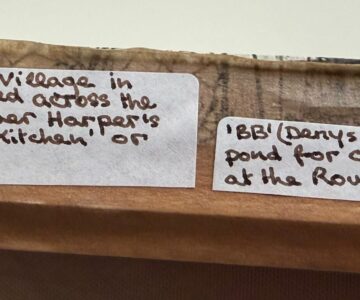 Village in
d across the
er Harper's
kitchen' or
'BB' (Denys
pond for
at the Rou